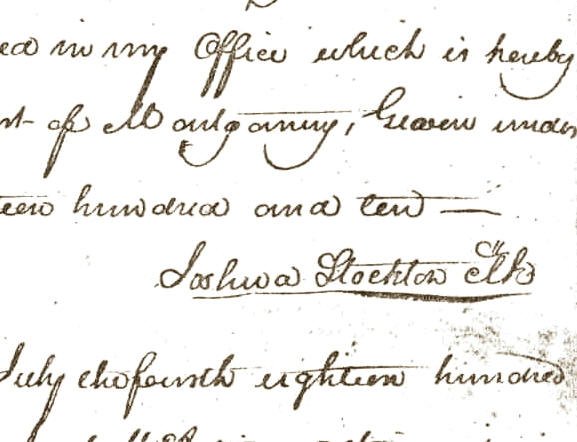 ed in my Office which is hereby
nt of Montgomery, Given under
teen hundred and ten —
Joshua Stockton Clk
July the fourth eighteen hundred